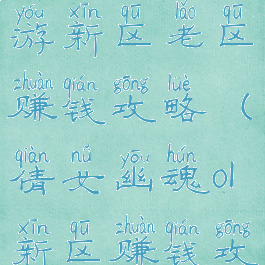 yóu xīn qū lǎo qū
游新区老区
zhuàn qián gōng lüè
赚钱攻略（
qiàn nǚ yōu hún
倩女幽魂ol
xīn qū zhuàn qián gōng
新区赚钱攻